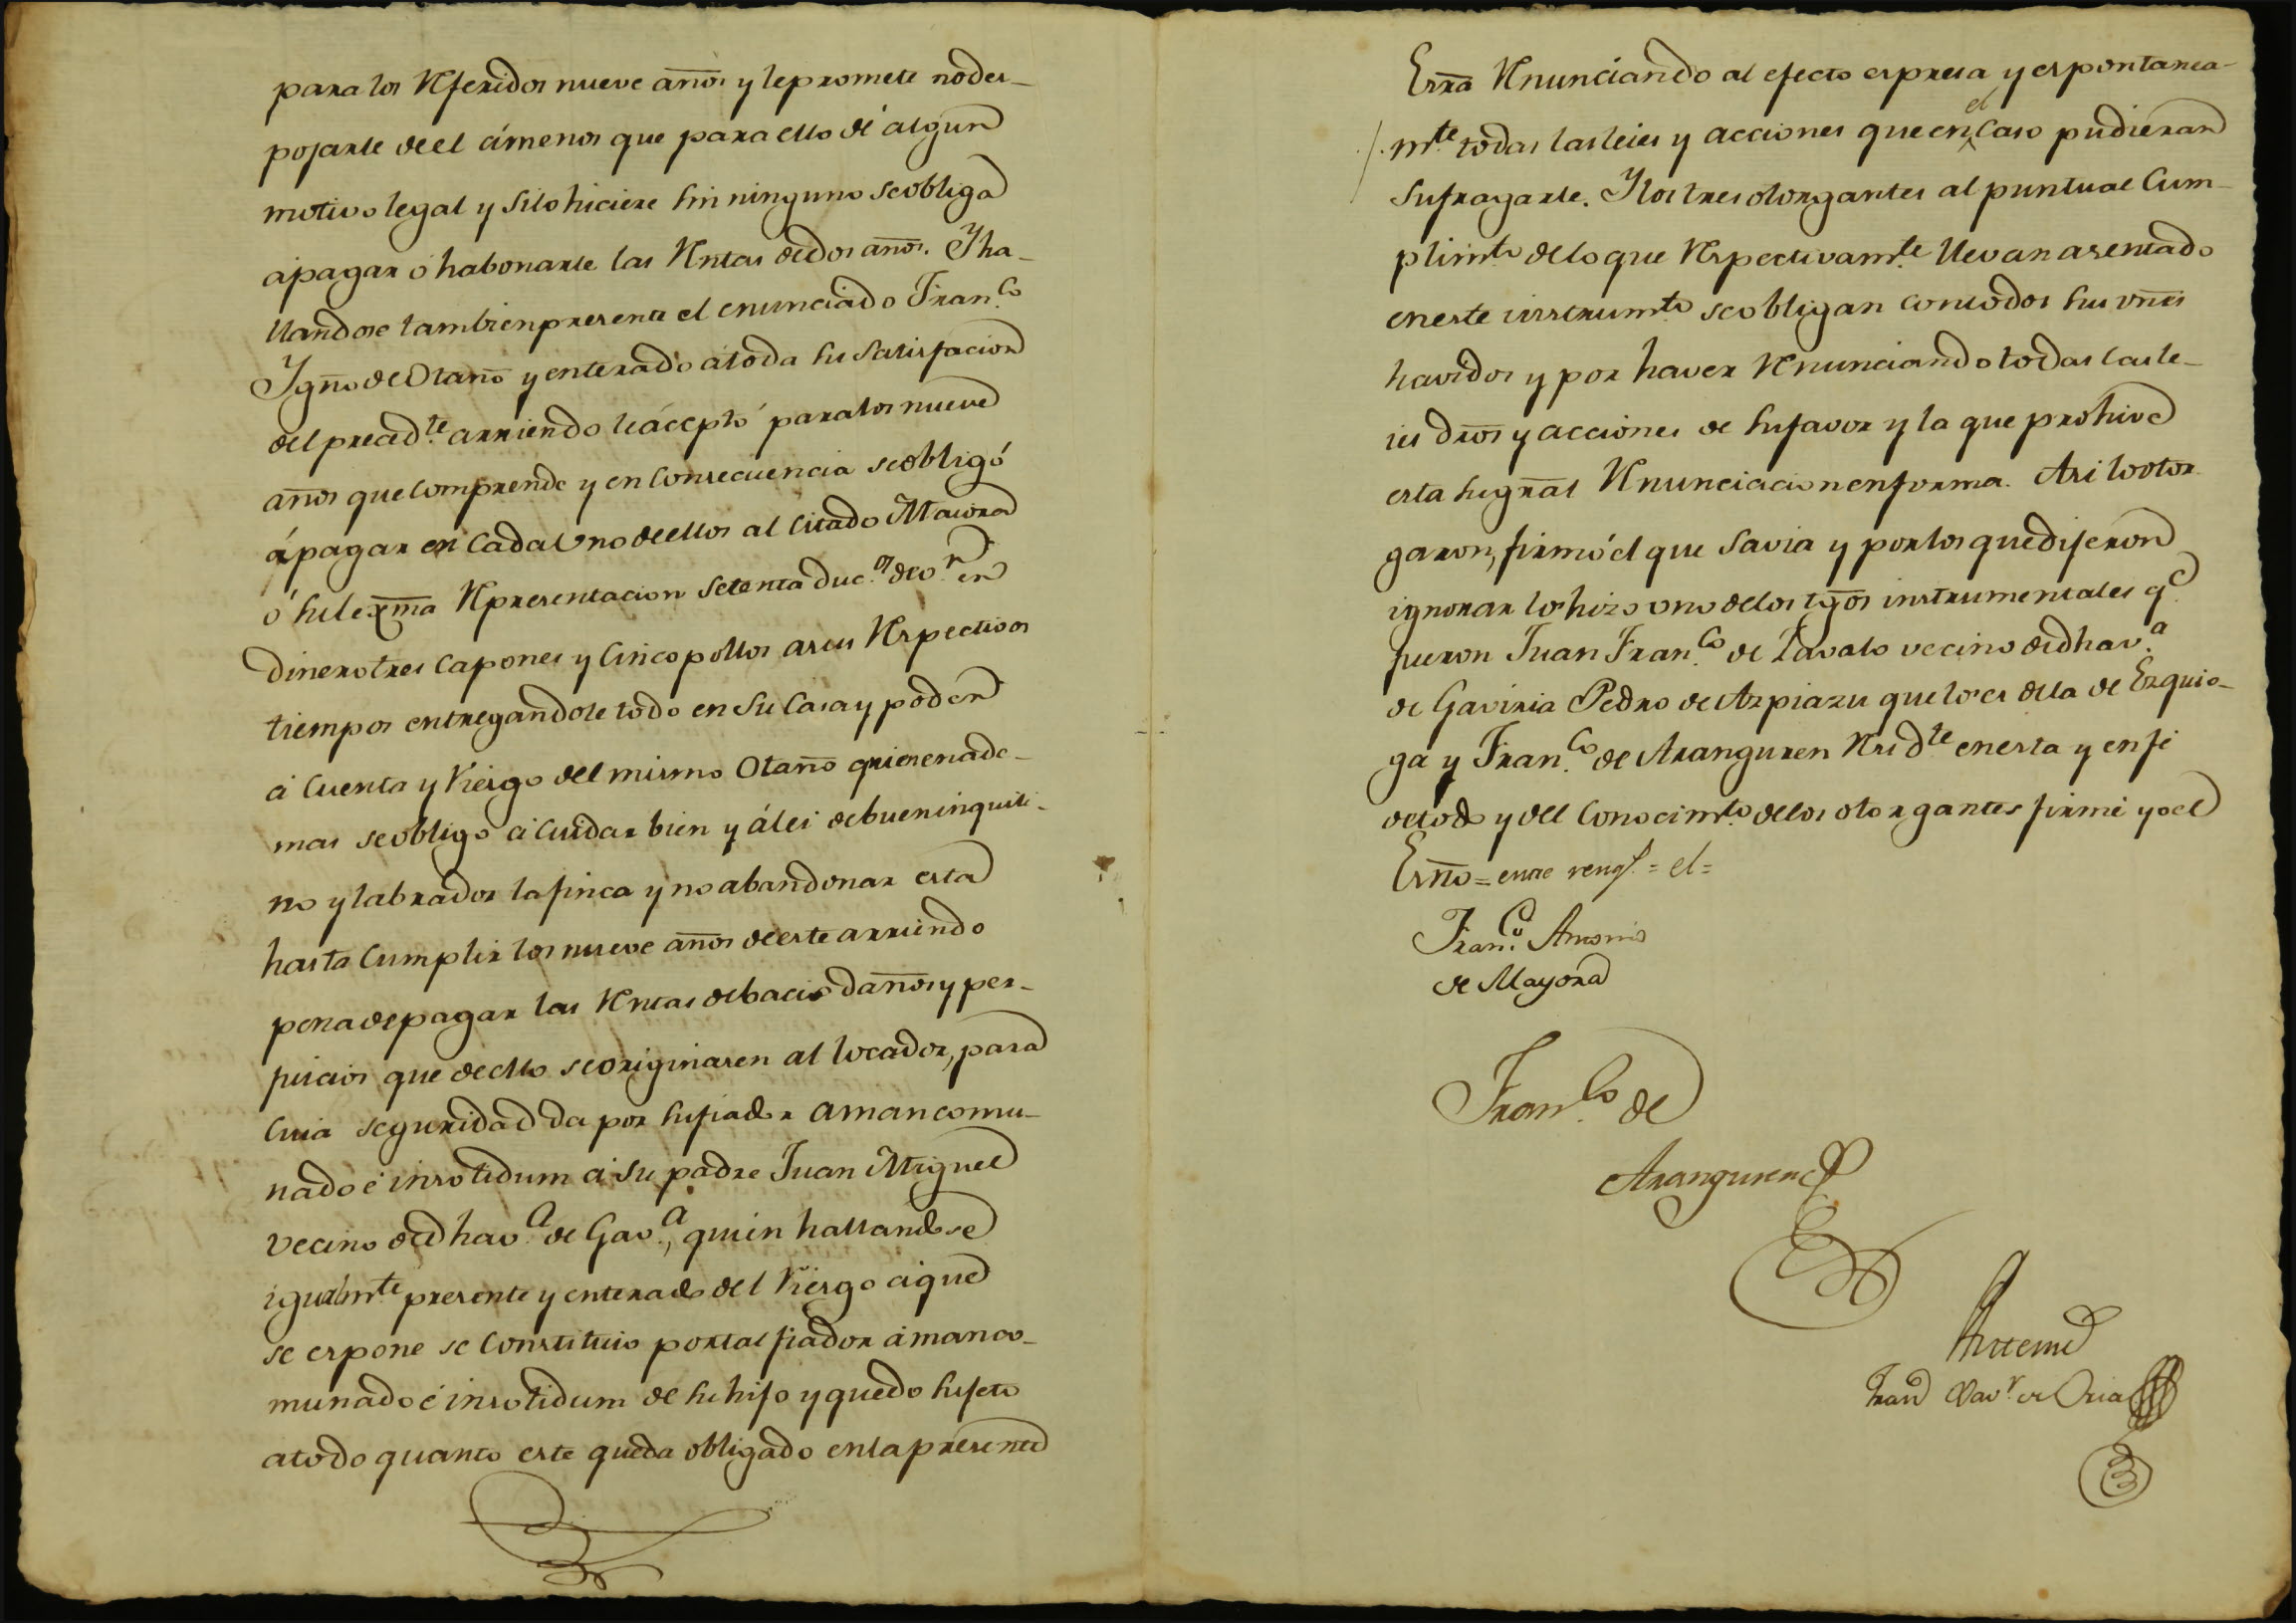 para los Referidos nueve años y le promete no des-
pojarle de el á menos que para ello dé algun
motivo legal y si lo hiciere sin ninguno se obliga
á pagar ó habonarle las Rentas de dos años. Y ha-
llandose tambien presente el enunciado Fran.co
Ign.o de Otaño y enterado á toda su satisfacion
del preced.te arriendo le áccepto para los nueve
años que comprende y en consecuencia se obligó
á pagar en cada uno de ellos al citado Maiora
ó su lexma Representacion setenta duc.os de v.n en
dinero tres capones y cinco pollos a sus Respectivos
tiempos entregandole todo en su casa y poder
á cuenta y Riesgo del mismo Otaño quien enade-
mas se obligo á cuidar bien y á lei de buen inquili-
no y labrador la finca y no abandonar esta
hasta cumplir los nueve años de este arriendo
pena de pagar las Rentas de bacio daños y per-
juicios que de ello se originasen al locador, para
cuia seguridad da por su fiador a mancomu-
nado é insolidum á su padre Juan Miguel
vecino de dha v.a de Gav.a, quien hallandose
igualm.te presente y enterado del Riesgo á que
se espone se constituio por tal fiador á manco-
munado é insolidum de su hijo y quedo sujeto
a todo quanto este queda obligado en la presente
Esrra Renunciando al efecto espresa y espontanea-
m.te todas las leies y acciones que en el caso pudieran
sufragarle. Y los tres otorgantes al puntual cum-
plim.to de lo que Respectivam.te llevan asentado
en este instrum.to se obligan con todos sus vnes
havidos y por haver Renunciando todas las le-
ies dros y acciones de su favor y la que prohive
esta su gral Renunciacion en forma. Asi lo otor
garon, firmó el que savia y por los que dijeron
ignorar lo hizo uno de los tgos instrumentales q.e
fueron Juan Fran.co de Zavalo vecino de dha v.a
de Gaviria Pedro de Azpiazu que lo es de la de Ezquio-
ga y Fran.co de Aranguren Resid.te en esta y en fe
de todo y del conocim.to de los otorgantes firmé yo el
Esrño = entre reng.s = el =
Fran.co Antonio
de Mayora
Fran.co de
Aranguren
Antemi
Fran Xav.r de Oria